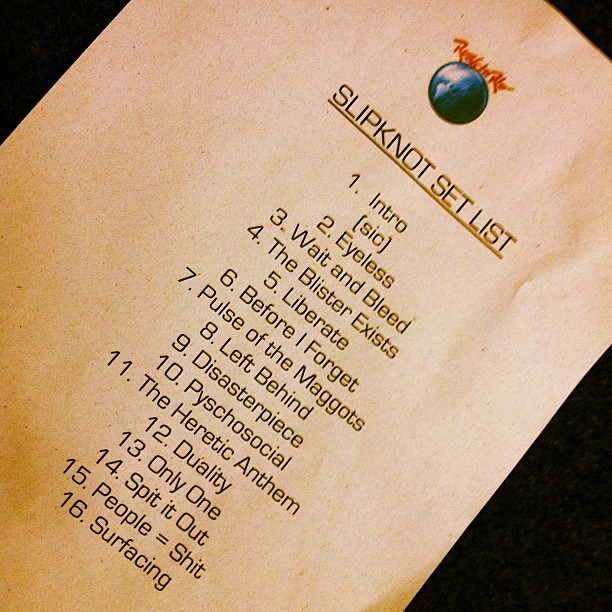 Rock in Rio
SLIPKNOT SET LIST
1. Intro
(sic)
2. Eyeless
3. Wait and Bleed
4. The Blister Exists
5. Liberate
6. Before I Forget
7. Pulse of the Maggots
8. Left Behind
9. Disasterpiece
10. Pyschosocial
11. The Heretic Anthem
12. Duality
13. Only One
14. Spit it Out
15. People = Shit
16. Surfacing